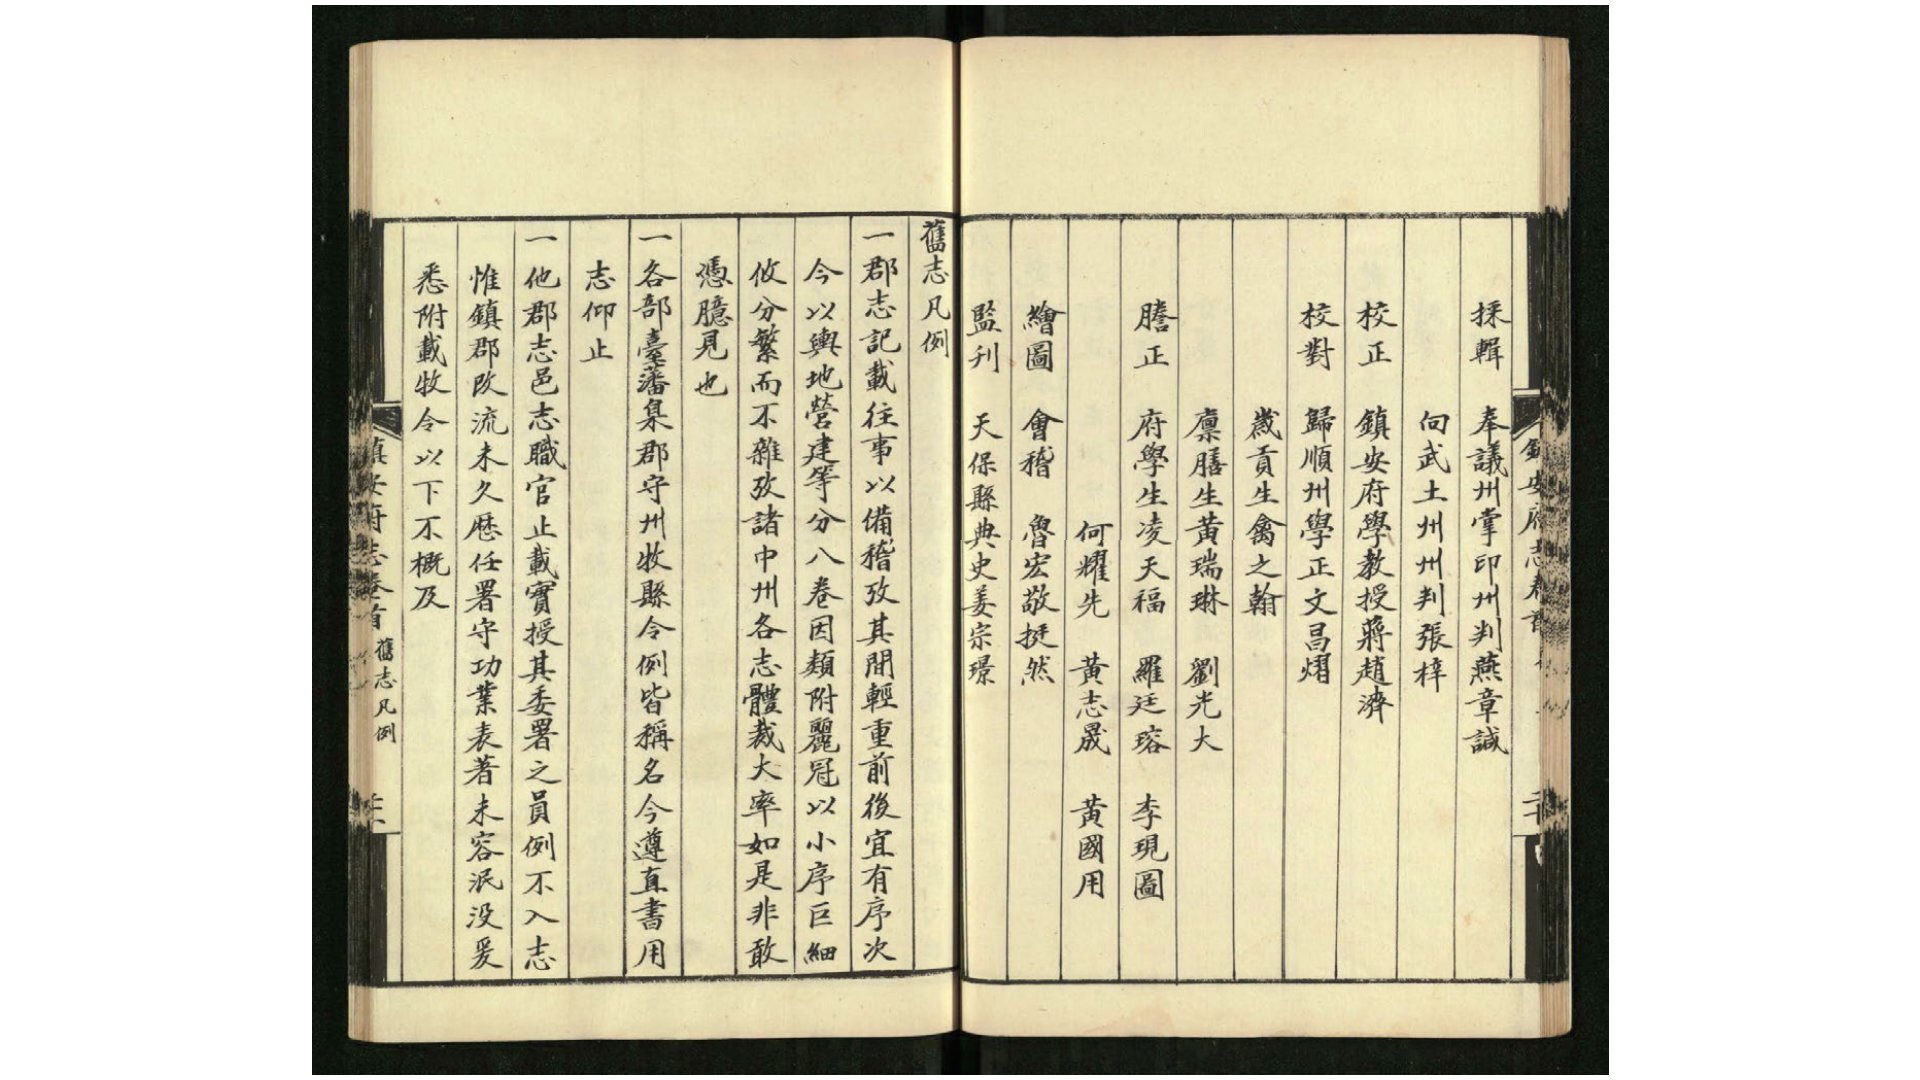 採輯　奉議州掌印州判燕章諴
向武土州州判張梓
校正　鎮安府學教授蔣趙濟
校對　歸順州學正文昌熠
歲貢生禽之翰
廪膳生黃瑞琳　劉光大
謄正　府學生凌天福　羅廷瑢　李現圖
何耀先　黃志晟　黃國用
繪圖　會稽　魯宏敬挺然
監刊　天保縣典史姜宗璟
舊志凡例
一郡志記載往事以備稽攷其間輕重前後宜有序次
今以輿地營建等分八卷因類附麗冠以小序巨細
攸分繁而不雜攷諸中州各志體裁大率如是非敢
憑臆見也
一各部臺藩臬郡守州牧縣令例皆稱名今遵直書用
志仰止
一他郡志邑志職官止載實授其委署之員例不入志
惟鎮郡改流未久歷任署守功業表著未容泯没爰
悉附載牧令以下不概及
鎮安府志卷首　舊志凡例